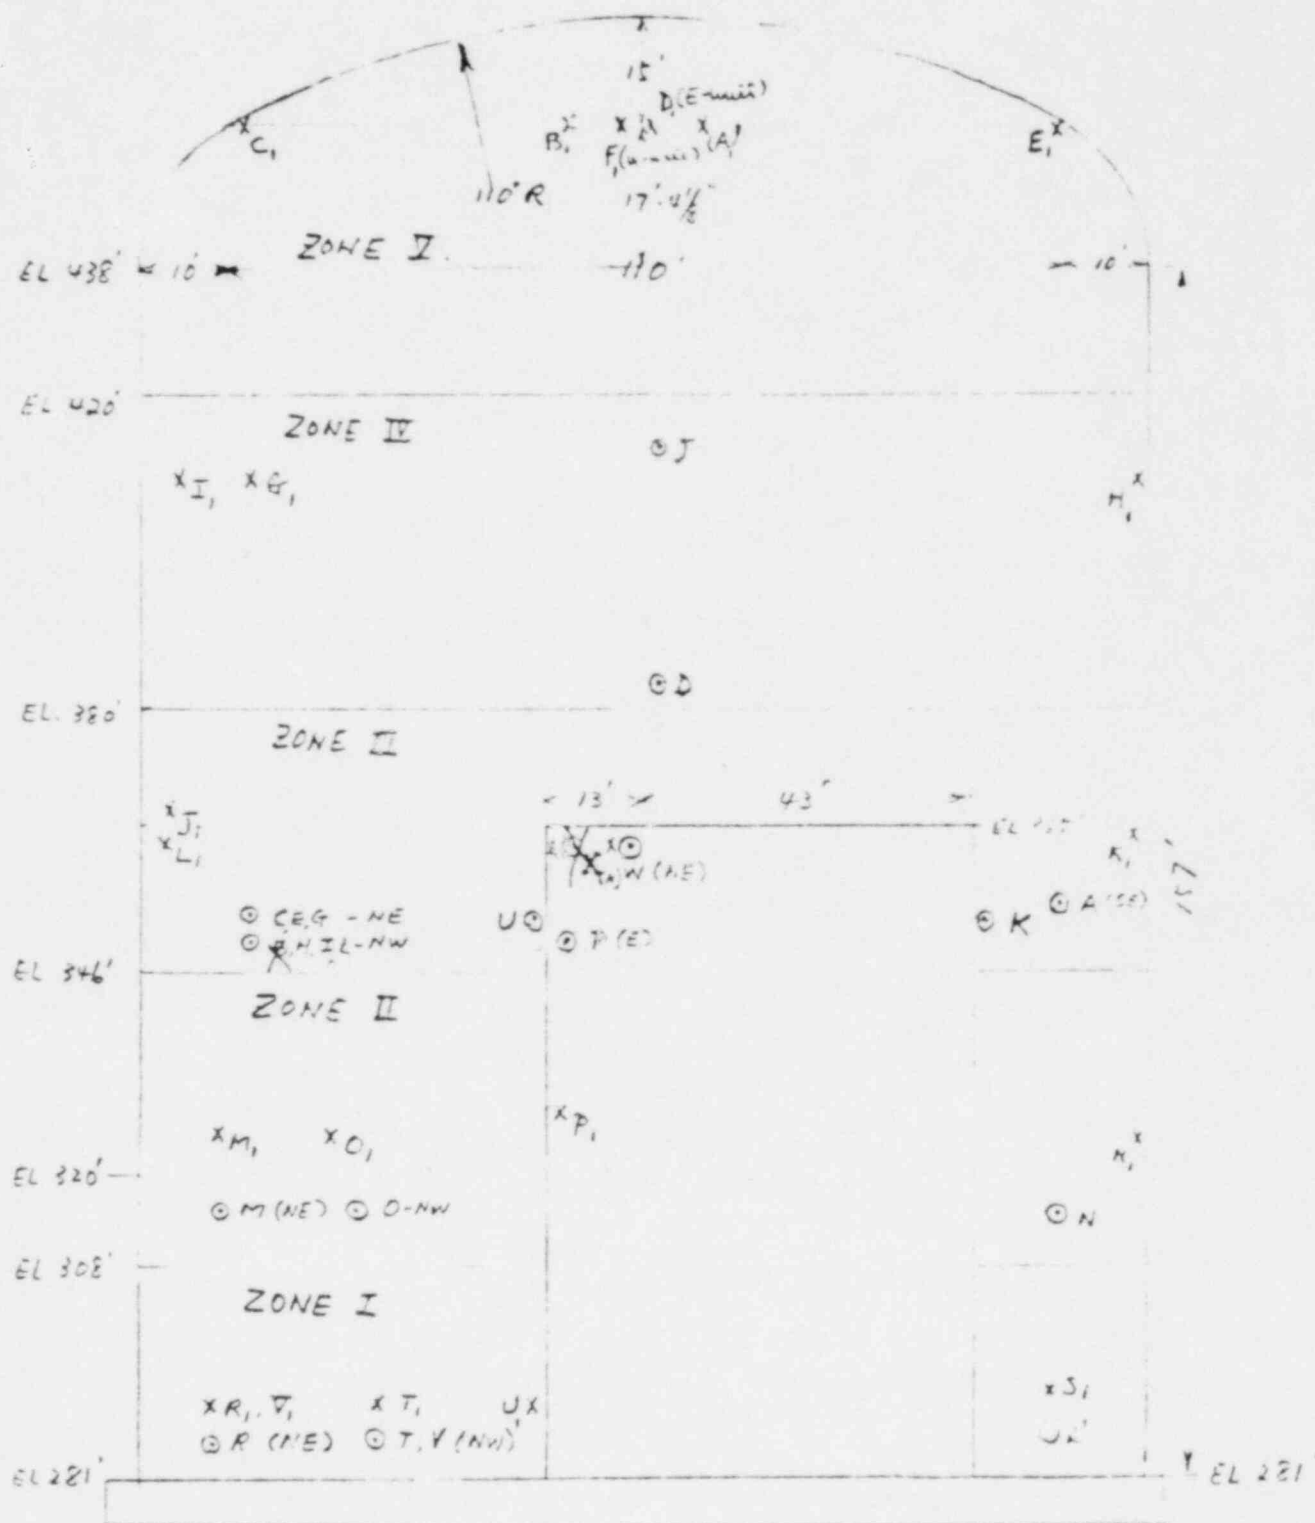 15'
D, (E-
C₁
B₁
E₁
F₁ (A₁)
110' R
17'-4½"
ZONE V.
EL 438'
10'
110'
10'
EL 420'
ZONE IV
J
I₁
G₁
H₁
D
EL. 380'
ZONE III
13'
43'
J₁
L₁
W (NE)
K₁
157'
C,E,G - NE
U
K
A (SE)
B,H,I,L-NW
P (E)
EL 346'
ZONE II
P₁
M₁
O₁
N₁
EL 320'
M (NE)
O-NW
N
EL 308'
ZONE I
S₁
R₁. V₁
T₁
U₁
R (NE)
T, V (NW)
EL 281'
EL 281